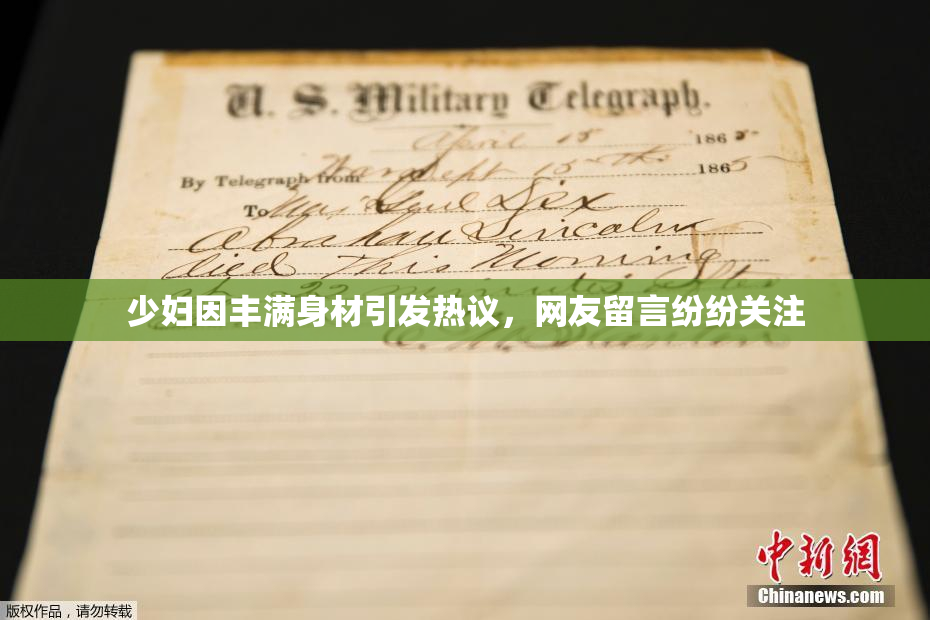 U. S. Military Telegraph.
April 15 1865
By Telegraph from War Dept 15th 1865
To Maj Genl Dix
Abraham Lincoln
died This Morning
at 22 minutes after
少妇因丰满身材引发热议，网友留言纷纷关注
E. M. Stanton
中新网
Chinanews.com
版权作品，请勿转载